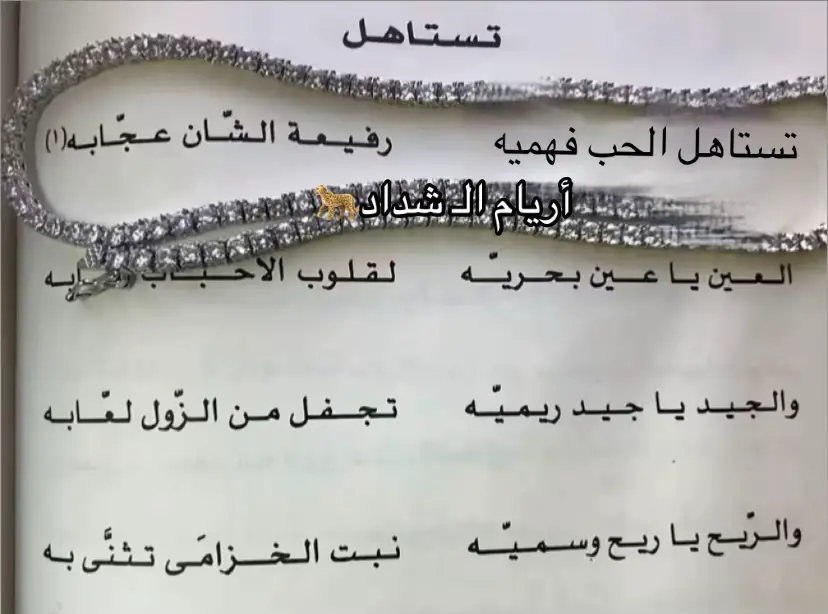 تستاهل
تستاهل الحب فهميه رفيعة الشّان عجّابه(١)
أريام الـ شداد
العين يا عين بحريّه لقلوب الاحباب
والجيد يا جيد ريميّه تجفل من الزّول لعّابه
والرّيح يا ريح وسميّه نبت الخزامَى تثنَّى به